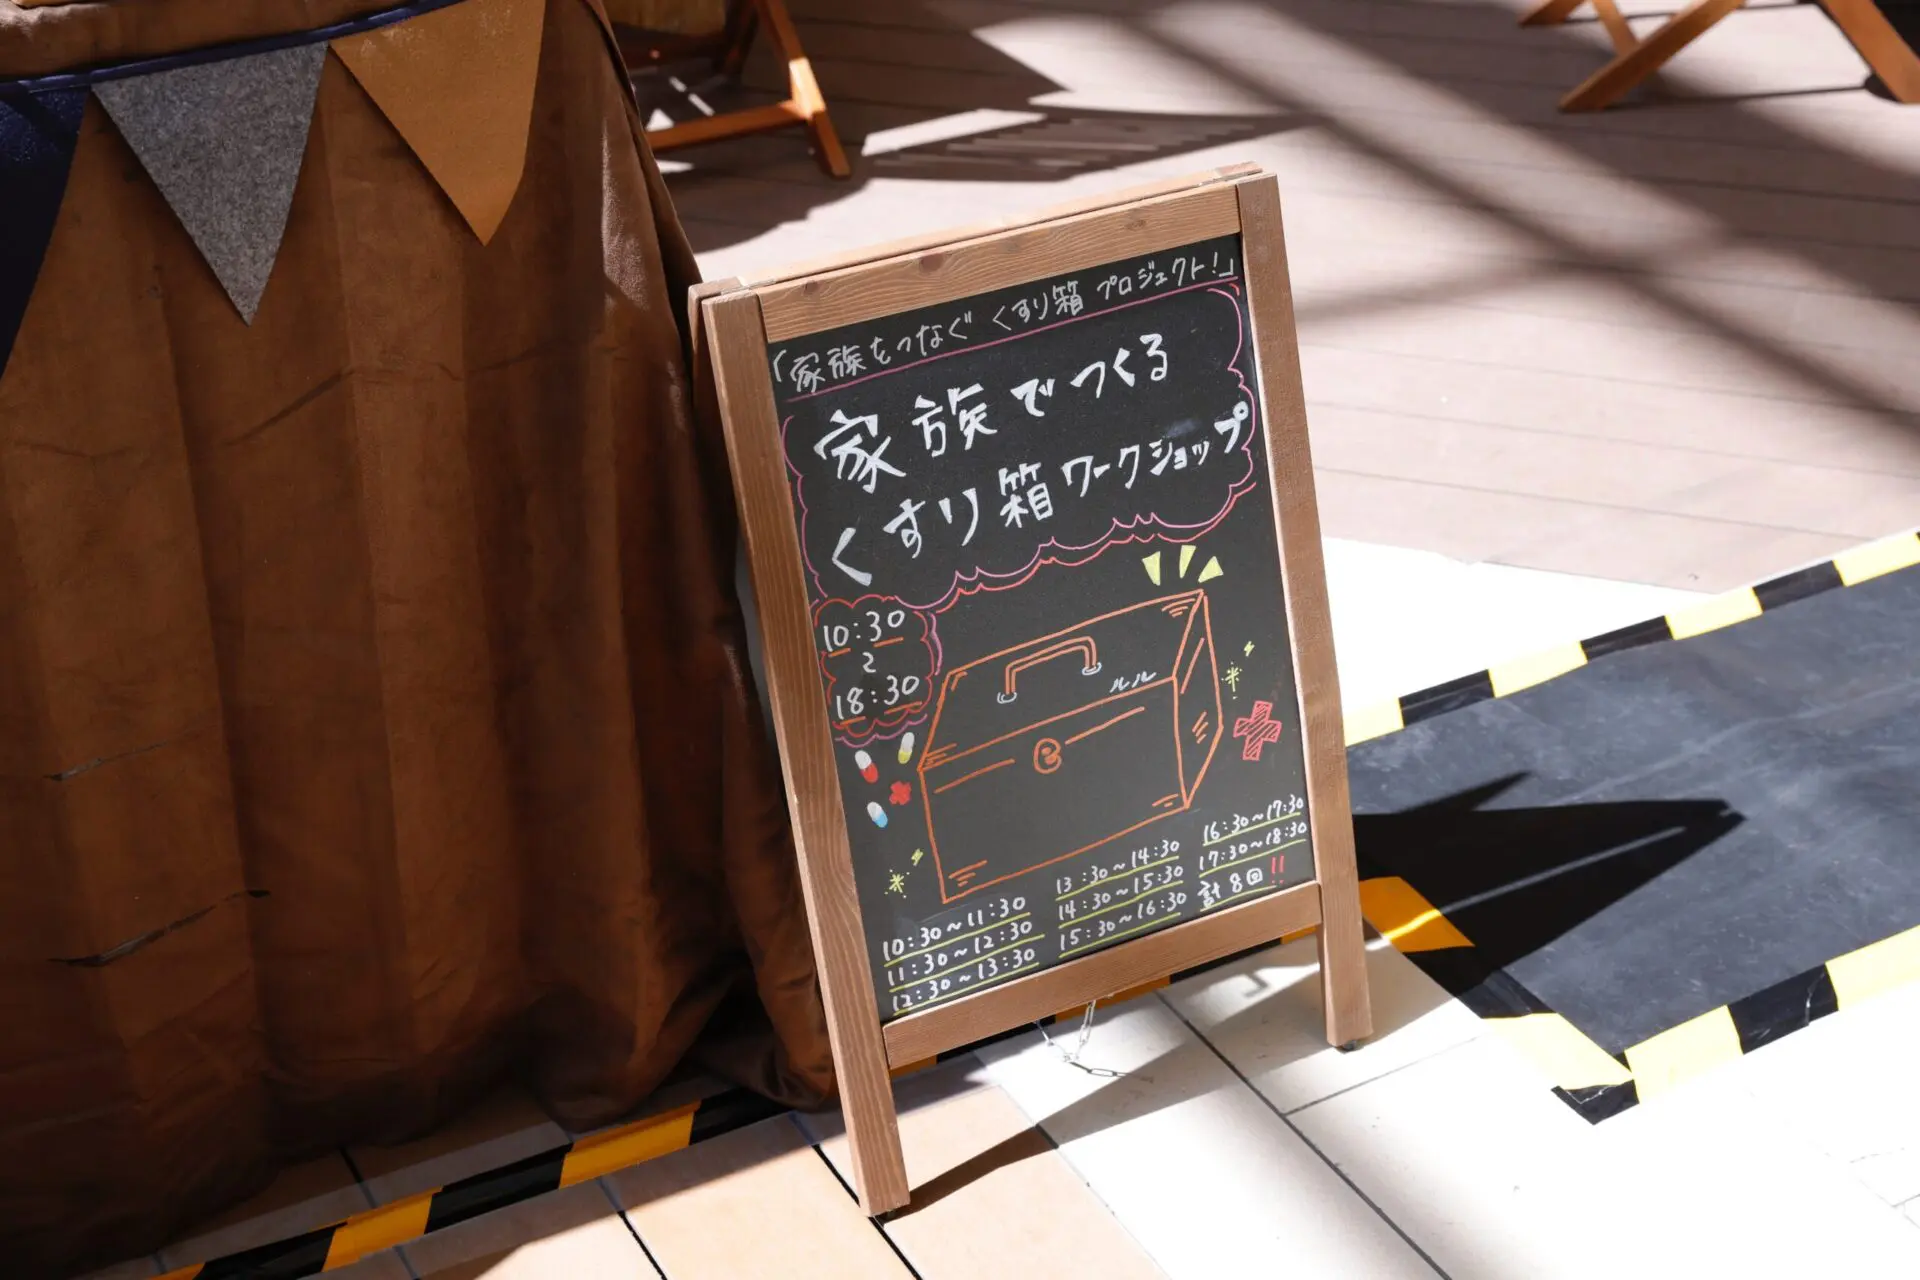 「家族をつなぐ くすり箱 プロジェクト!」
家族でつくる
くすり箱ワークショップ
10:30
〜
18:30
ルル
10:30~11:30
11:30~12:30
12:30~13:30
13:30~14:30
14:30~15:30
15:30~16:30
16:30~17:30
17:30~18:30
計8回!!